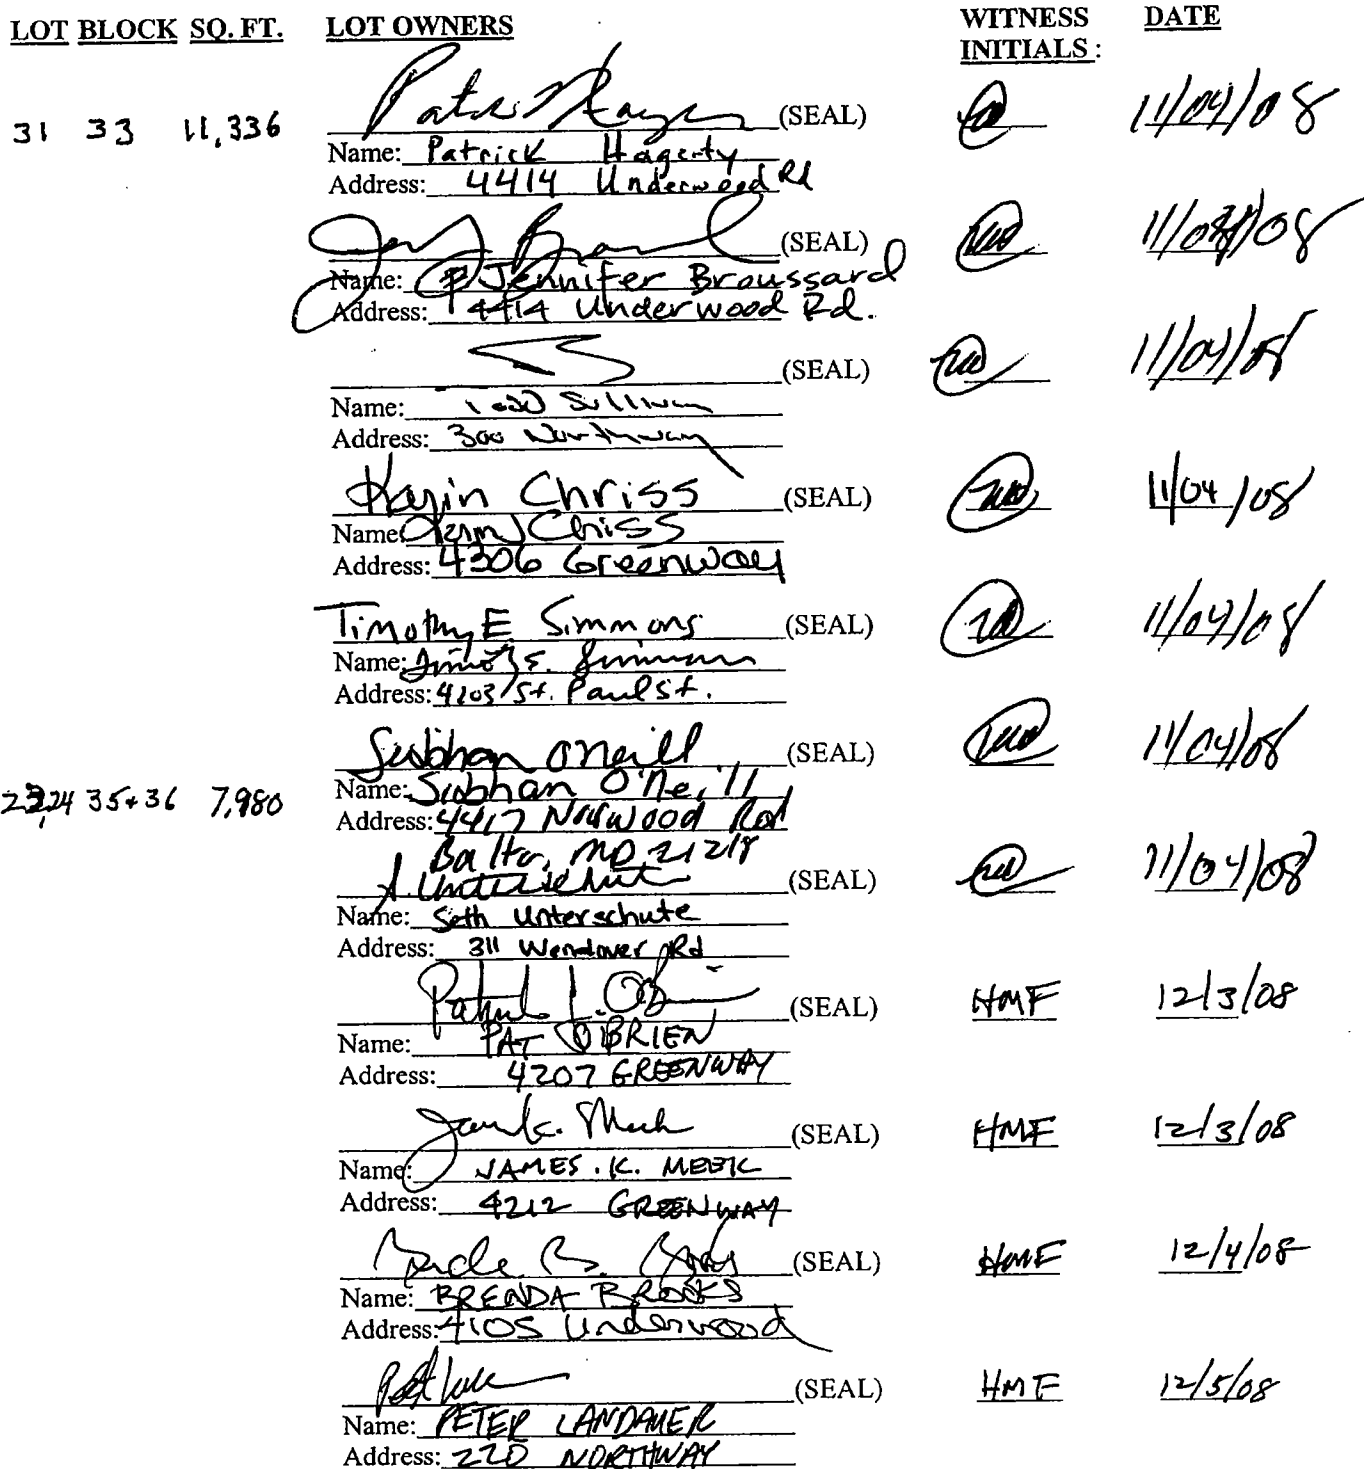 LOT BLOCK SQ. FT. LOT OWNERS WITNESS INITIALS : DATE
31 33 11,336 (SEAL) 11/04/08
Name: Patrick Hagerty
Address: 4414 Underwood Rd
(SEAL) 11/04/08
Name: Jennifer Broussard
Address: 4414 Underwood Rd.
(SEAL) 11/04/08
Name: Todd Sullivan
Address: 300 Northway
Karin Chriss (SEAL) 11/04/08
Name: Chriss
Address: 4306 Greenway
Timothy E. Simmons (SEAL) 11/04/08
Name: Timothy E. Simmons
Address: 4203 St. Paul St.
Siobhan O'Neill (SEAL) 11/04/08
23,24 35+36 7,980 Name: Siobhan O'Neill
Address: 4417 Norwood Rod
Balto, MD 21218
S. Unterschute (SEAL) 11/04/08
Name: Seth Unterschute
Address: 311 Wendover Rd
Patrick L. O'Brien (SEAL) HMF 12/3/08
Name: PAT O'BRIEN
Address: 4207 GREENWAY
James K. Meek (SEAL) HMF 12/3/08
Name: JAMES. K. MEEK
Address: 4212 GREENWAY
Brenda B. Brooks (SEAL) HMF 12/4/08
Name: BRENDA BROOKS
Address: 4105 Underwood
(SEAL) HMF 12/5/08
Name: PETER LANDAUER
Address: 220 NORTHWAY